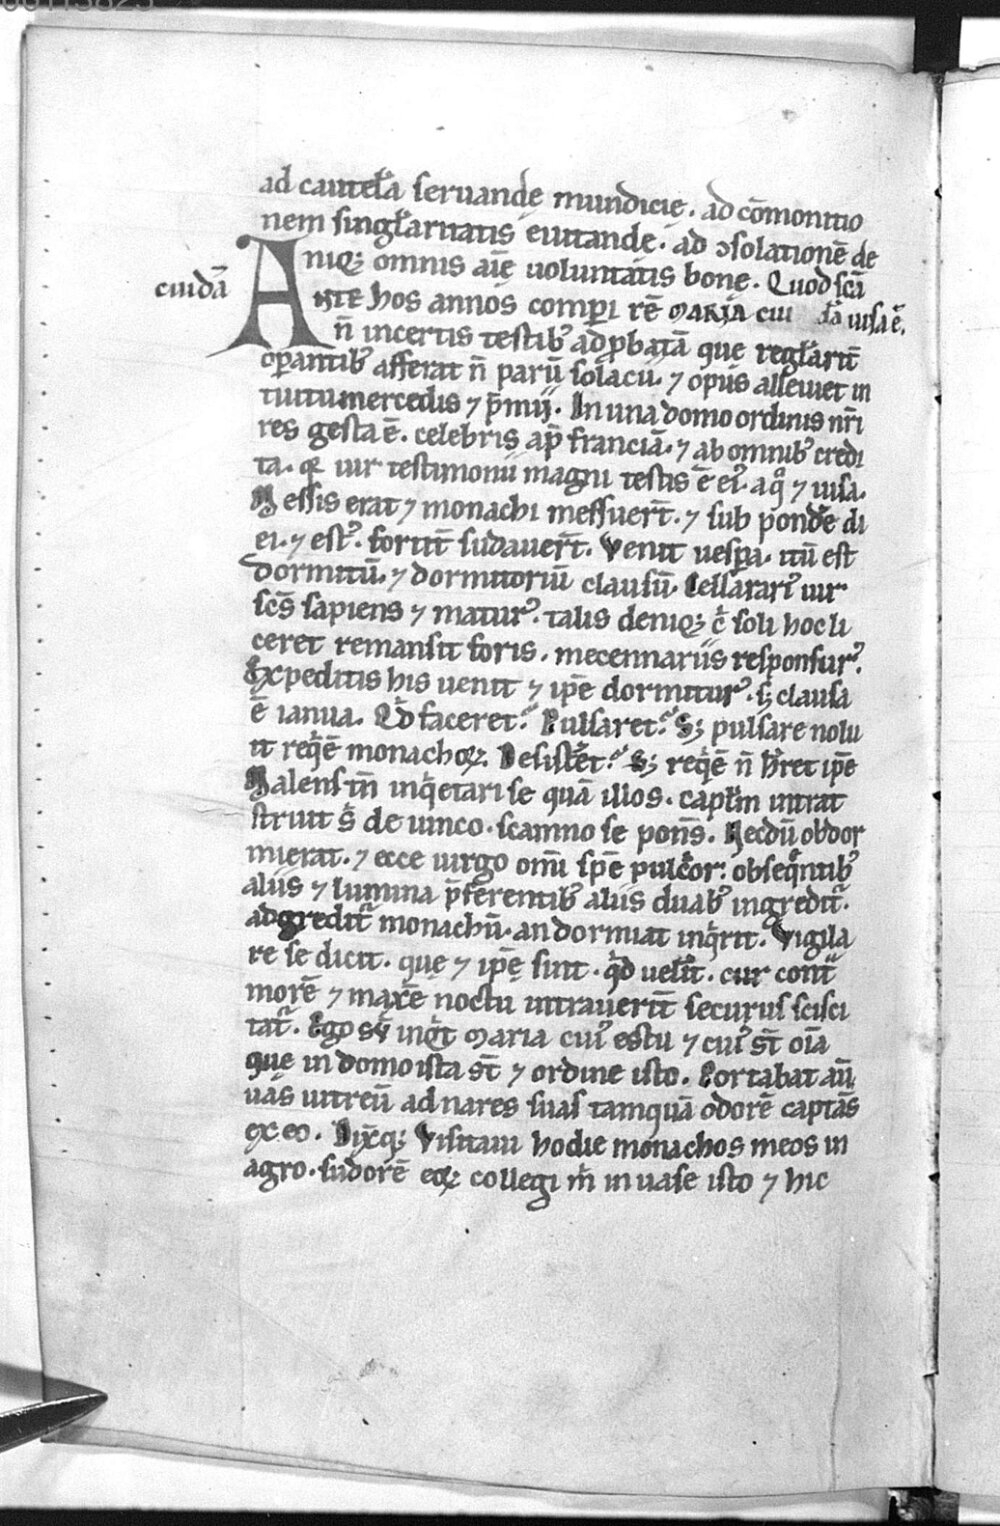 ad cautel̄a seruandę mundicię. ad cōmonitio
nem singl̄aritatis euitandę. ad ↄsolationē de
niq; omnis aīę uoluntatis bonę. Quod scā
cuidā
Ante hos annos comp̲i rē maria cui dā uisa ē.
n̄ incertis testib; adp̲batā que regl̄arit̄
op̲antib; afferat n̄ parū solacii. ⁊ opus alleuiet in
tuitu mercedis ⁊ p̄mij. In una domo ordinis nr̄i
res gesta ē. celebris ap̄ franciā. ⁊ ab omnib; credi
ta. qͥ uir testimonii magni testis ē ei᷒. a qͦ ⁊ uisa.
Messis erat ⁊ monachi messuer̄t. ⁊ sub pondere di
ei. ⁊ est᷒. fortit̄ sudauer̄t. Venit uesp̲a. itū est
dormitū. ⁊ dormitoriū clausū. Cellarari᷒ uir
sc̄s sapiens ⁊ matur᷒. talis deniq; c̄ soli hoc li
ceret remansit foris. mecennariis responsur᷒.
Expeditis his uenit ⁊ ip̄e dormitur᷒. s; clausa
ē ianua. Qͥd faceret? Pulsaret? S; pulsare nolu
it reqͥē monachoꝝ. Desisteret? S; reqͥē n̄ hr̄et ip̄e
Malens tn̄ inqͥetari se quā illos. capl̄m intrat
struit sͥ de iunco. scamno se pon̄s. Necdū obdor
mierat. ⁊ ecce uirgo om̄i spē pulcͥor: obseqͣntib;
aliis ⁊ lumina p̄ferentib; aliis duab; ingredit᷑.
adgredit᷑ monachū. an dormiat inqͥrit. Vigila
re se dicit. que ⁊ ip̄ę sint. qͥd uel̄it. cur cont᷑
morē ⁊ maxͥē noctu intrauerit̄ securus scisci
tat᷑. Ego sū inqͥt maria cui᷒ es tu ⁊ cui᷒ st̄ oīa
que in domo ista st̄ ⁊ ordine isto. Portabat aū
uas uitreū ad nares suas tamquā odorē captās
ex eo. Dixͥq; Visitaui hodie monachos meos in
agro. sudorē eoꝝ collegi m̄ in uase isto ⁊ hic